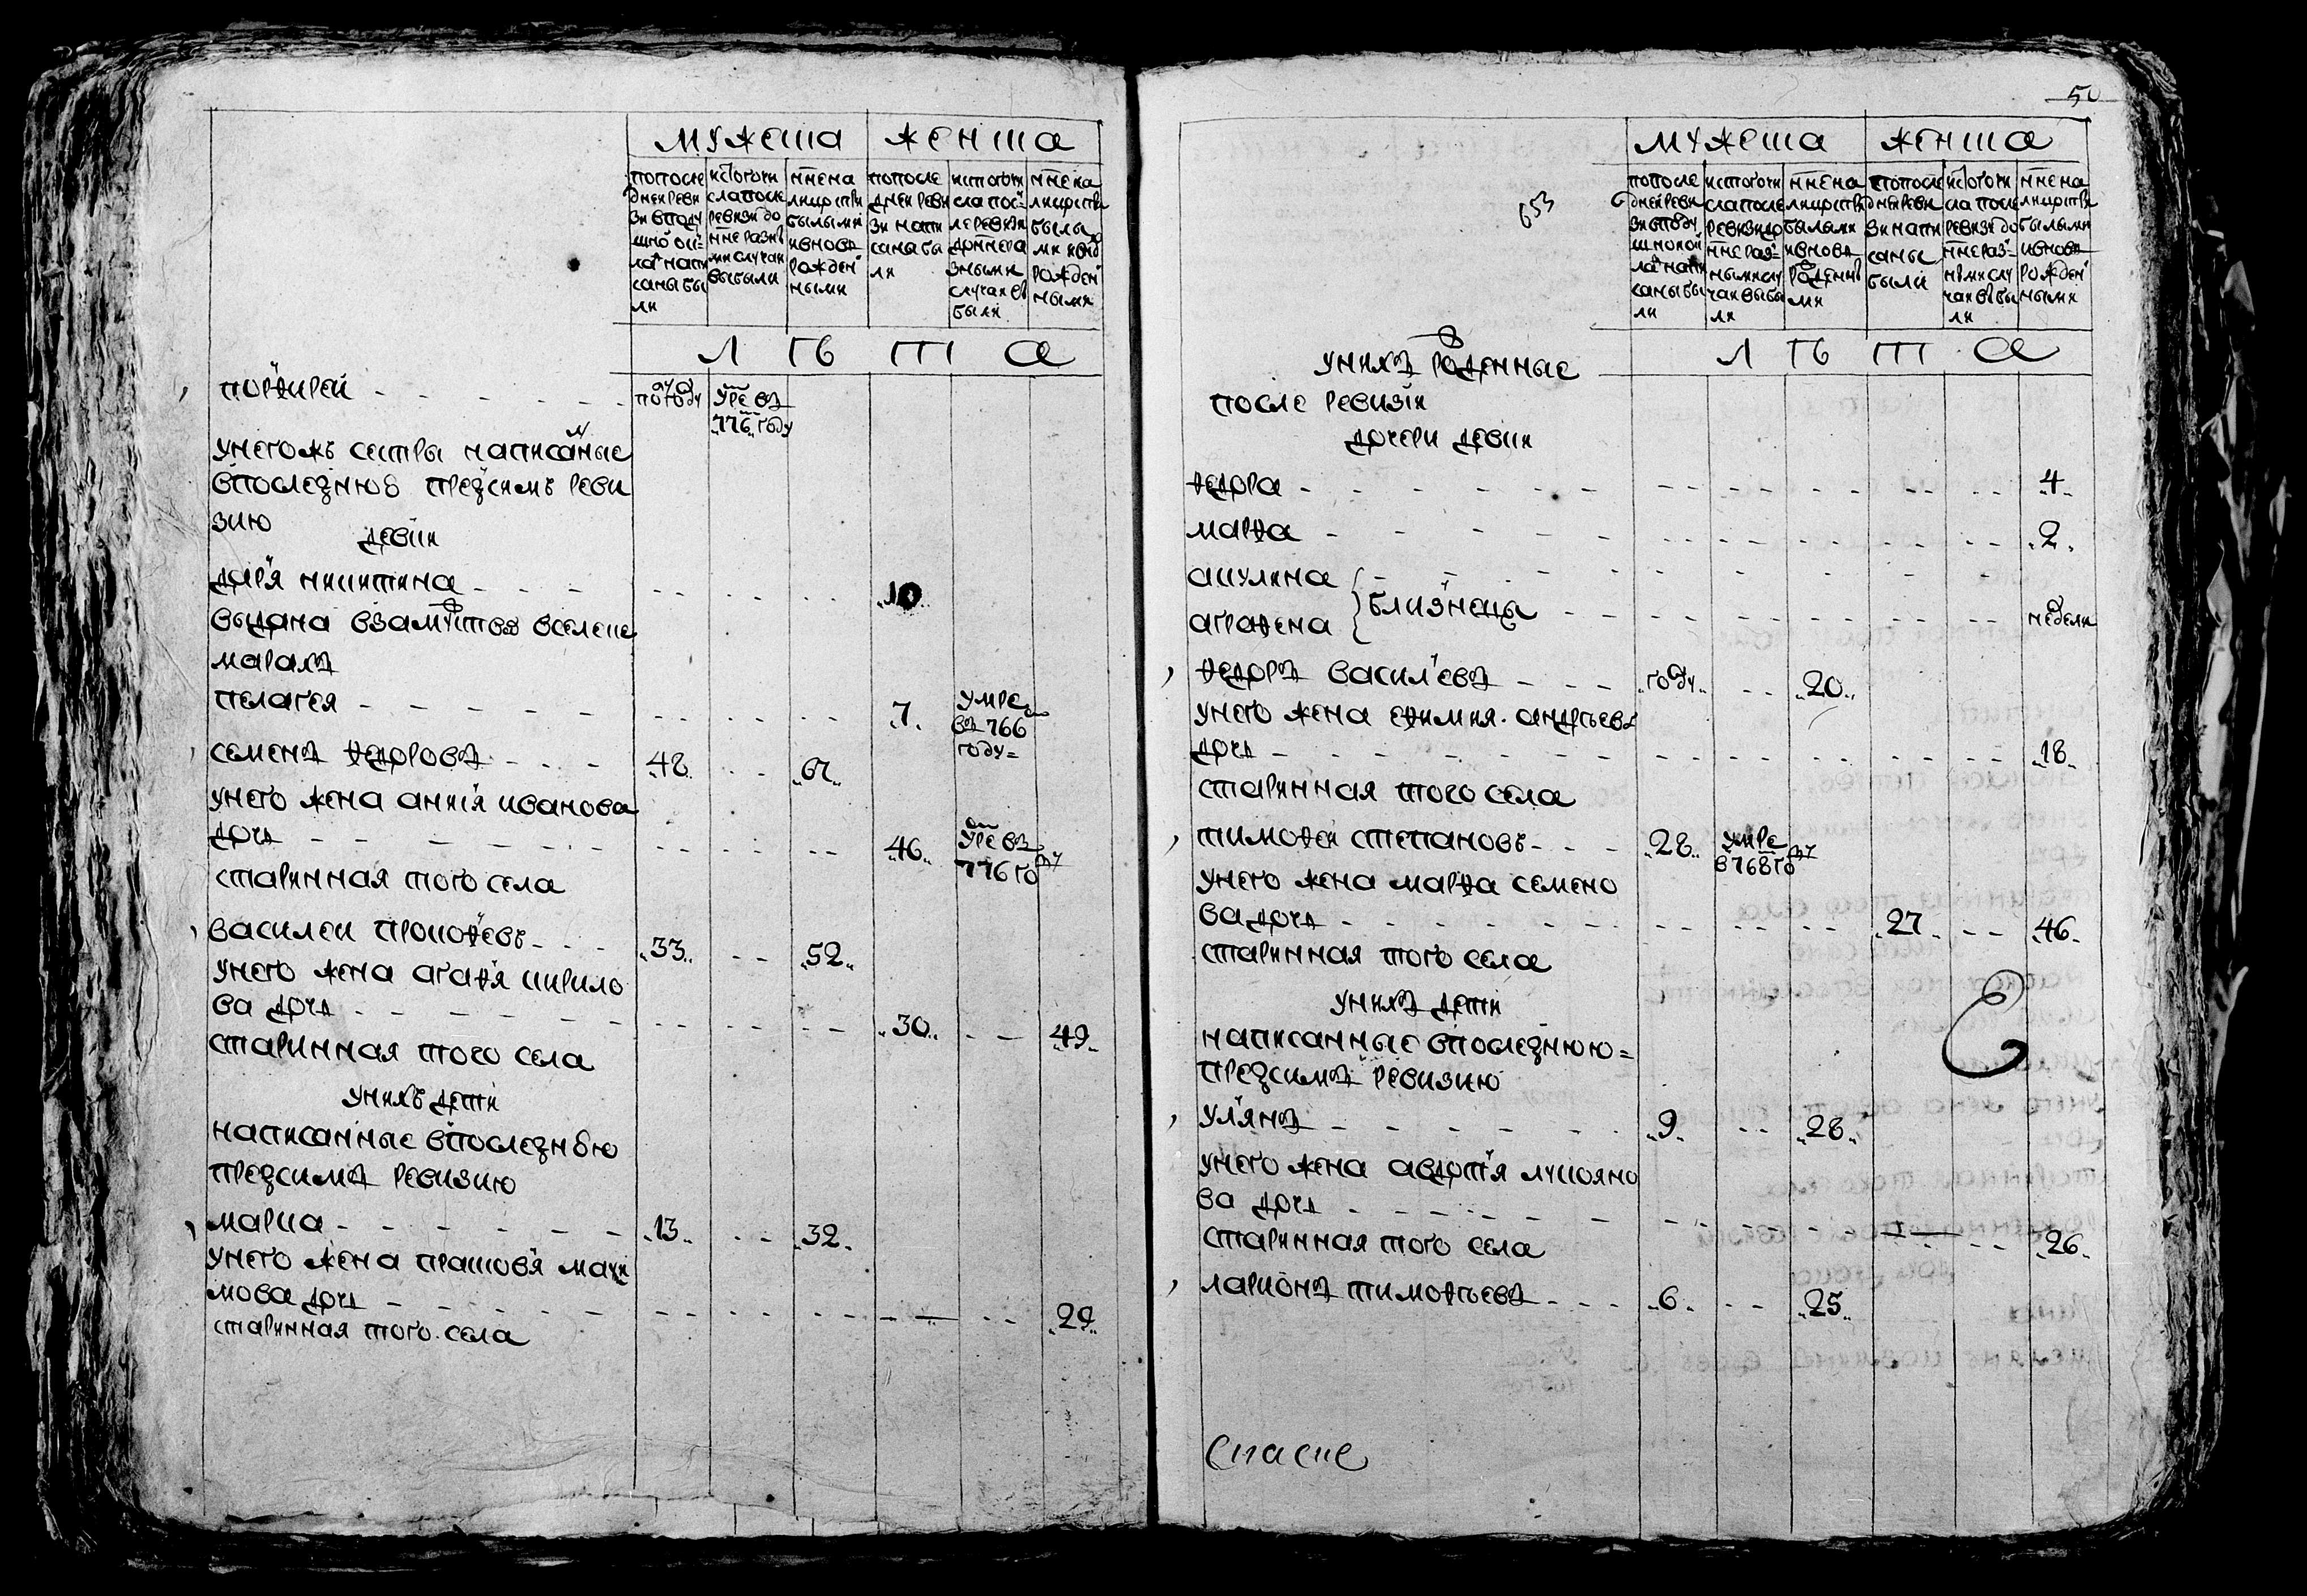 мужеска
женска
попоследнеи ревизии вподушной оклад написаны были
ис того числа после ревизи до ныне разными случаи выбыли
ныне на лицо с прибылыми и вновь рожденными
попоследнеи ревизи написаны были
ис того числа после ревизи до ныне разными случаи выбыли
ныне на лицо с прибылыми и вновь рожденными
лѣта
порфирей - - - - - - полгоду умре въ 776 году
унегожъ сестры написаные
впоследнюю предсимъ реви
зию
девки
дарья никитина - - - 10
выдана взамуство вселение
марахъ
пелагея - - - - - 7. умре въ 766 году
семенъ федоровъ - - - 48. 67.
унего жена анисья иванова
дочь - - - - - 46. умре въ 776 году
старинная того села
василеи прокофьевъ - - - 33. 52.
унего жена агафья кирило
ва дочь - - - - - 30. 49.
старинная того села
унихъ дети
написанные впоследнюю
предсимъ ревизию
марка - - - - - - 13. 32.
унего жена прасковья макси
мова дочь - - - - - 29.
старинная того села
50
653
мужеска
женска
попоследнеи ревизи вподушной оклад написаны были
ис того числа после ревизи до ныне разными случаи выбыли
ныне на лицо с прибылыми и вновь рожденными
попоследнеи ревизи написаны были
ис того числа после ревизи до ныне разными случаи выбыли
ныне на лицо с прибылыми и вновь рожденными
лѣта
унихъ рожденные
после ревизіи
дочери девки
федора - - - - - - 4.
марфа - - - - - 2.
акулина
близнецы - - недели
аграфена
федоръ васильевъ - - - году. 20.
унего жена ефимия андрѣева
дочь - - - - - 18.
старинная того села
тимофеи степановъ - - - 28. умре в 768 году
унего жена марфа семено
ва дочь - - - - - 27. 46.
старинная того села
унихъ дети
написанные впоследнюю=
предсимъ ревизию
ульянъ - - - - - 9. 28.
унего жена авдотья лукояно
ва дочь - - - - - 26.
старинная того села
ларионъ тимофѣевъ - - - 6. 25.